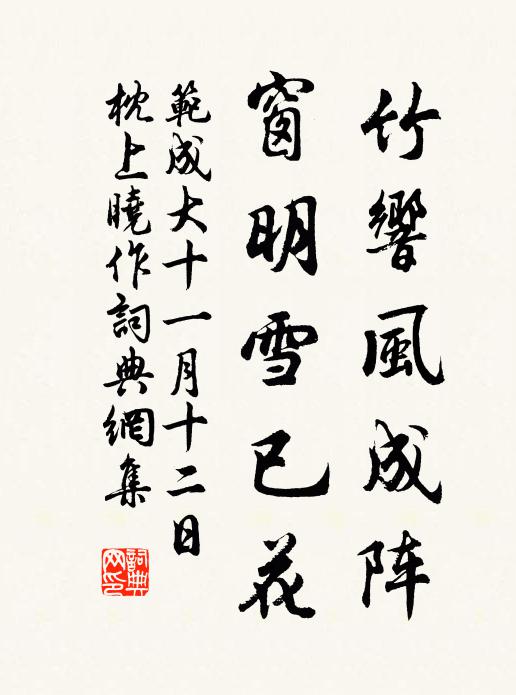 竹響風成阵
窗明雪已花
範成大十一月十二日
枕上曉作詞典網集
詞典
网印